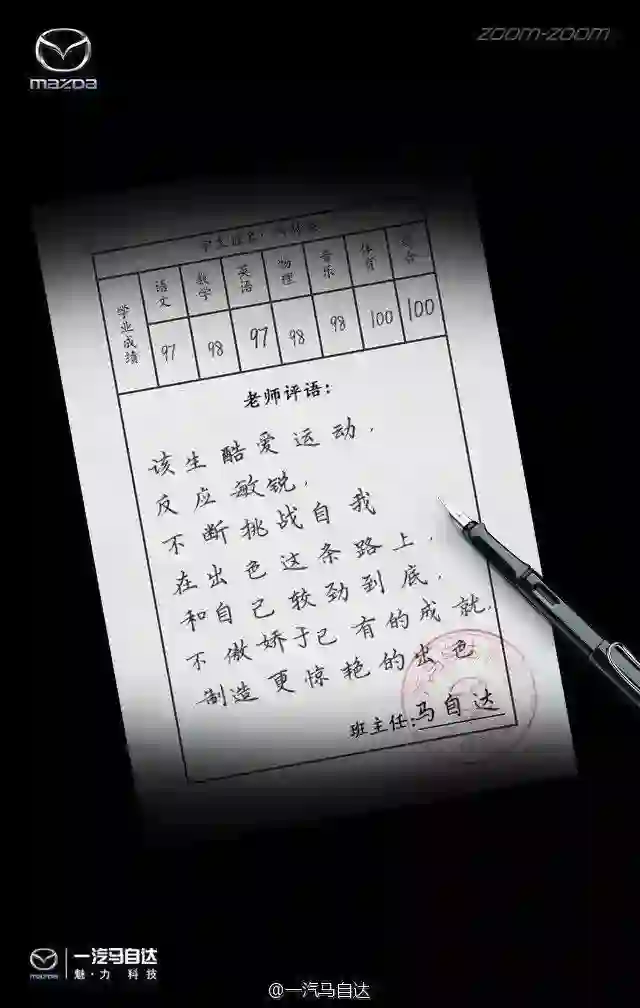 mazda
zoom-zoom
学生姓名：
学业成绩 语文 数学 英语 物理 音乐 体育 综合
97 98 97 98 98 100 100
老师评语：
该生酷爱运动，
反应敏锐，
不断挑战自我
在出色这条路上，
和自己较劲到底，
不傲娇于已有的成就，
制造更惊艳的出色
班主任：马自达
一汽马自达
魅·力 科技
@一汽马自达